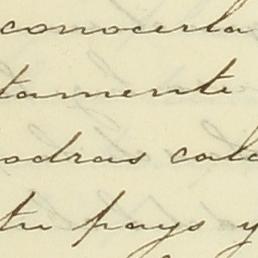 conocerla
tamente
odras calc
tu pays y